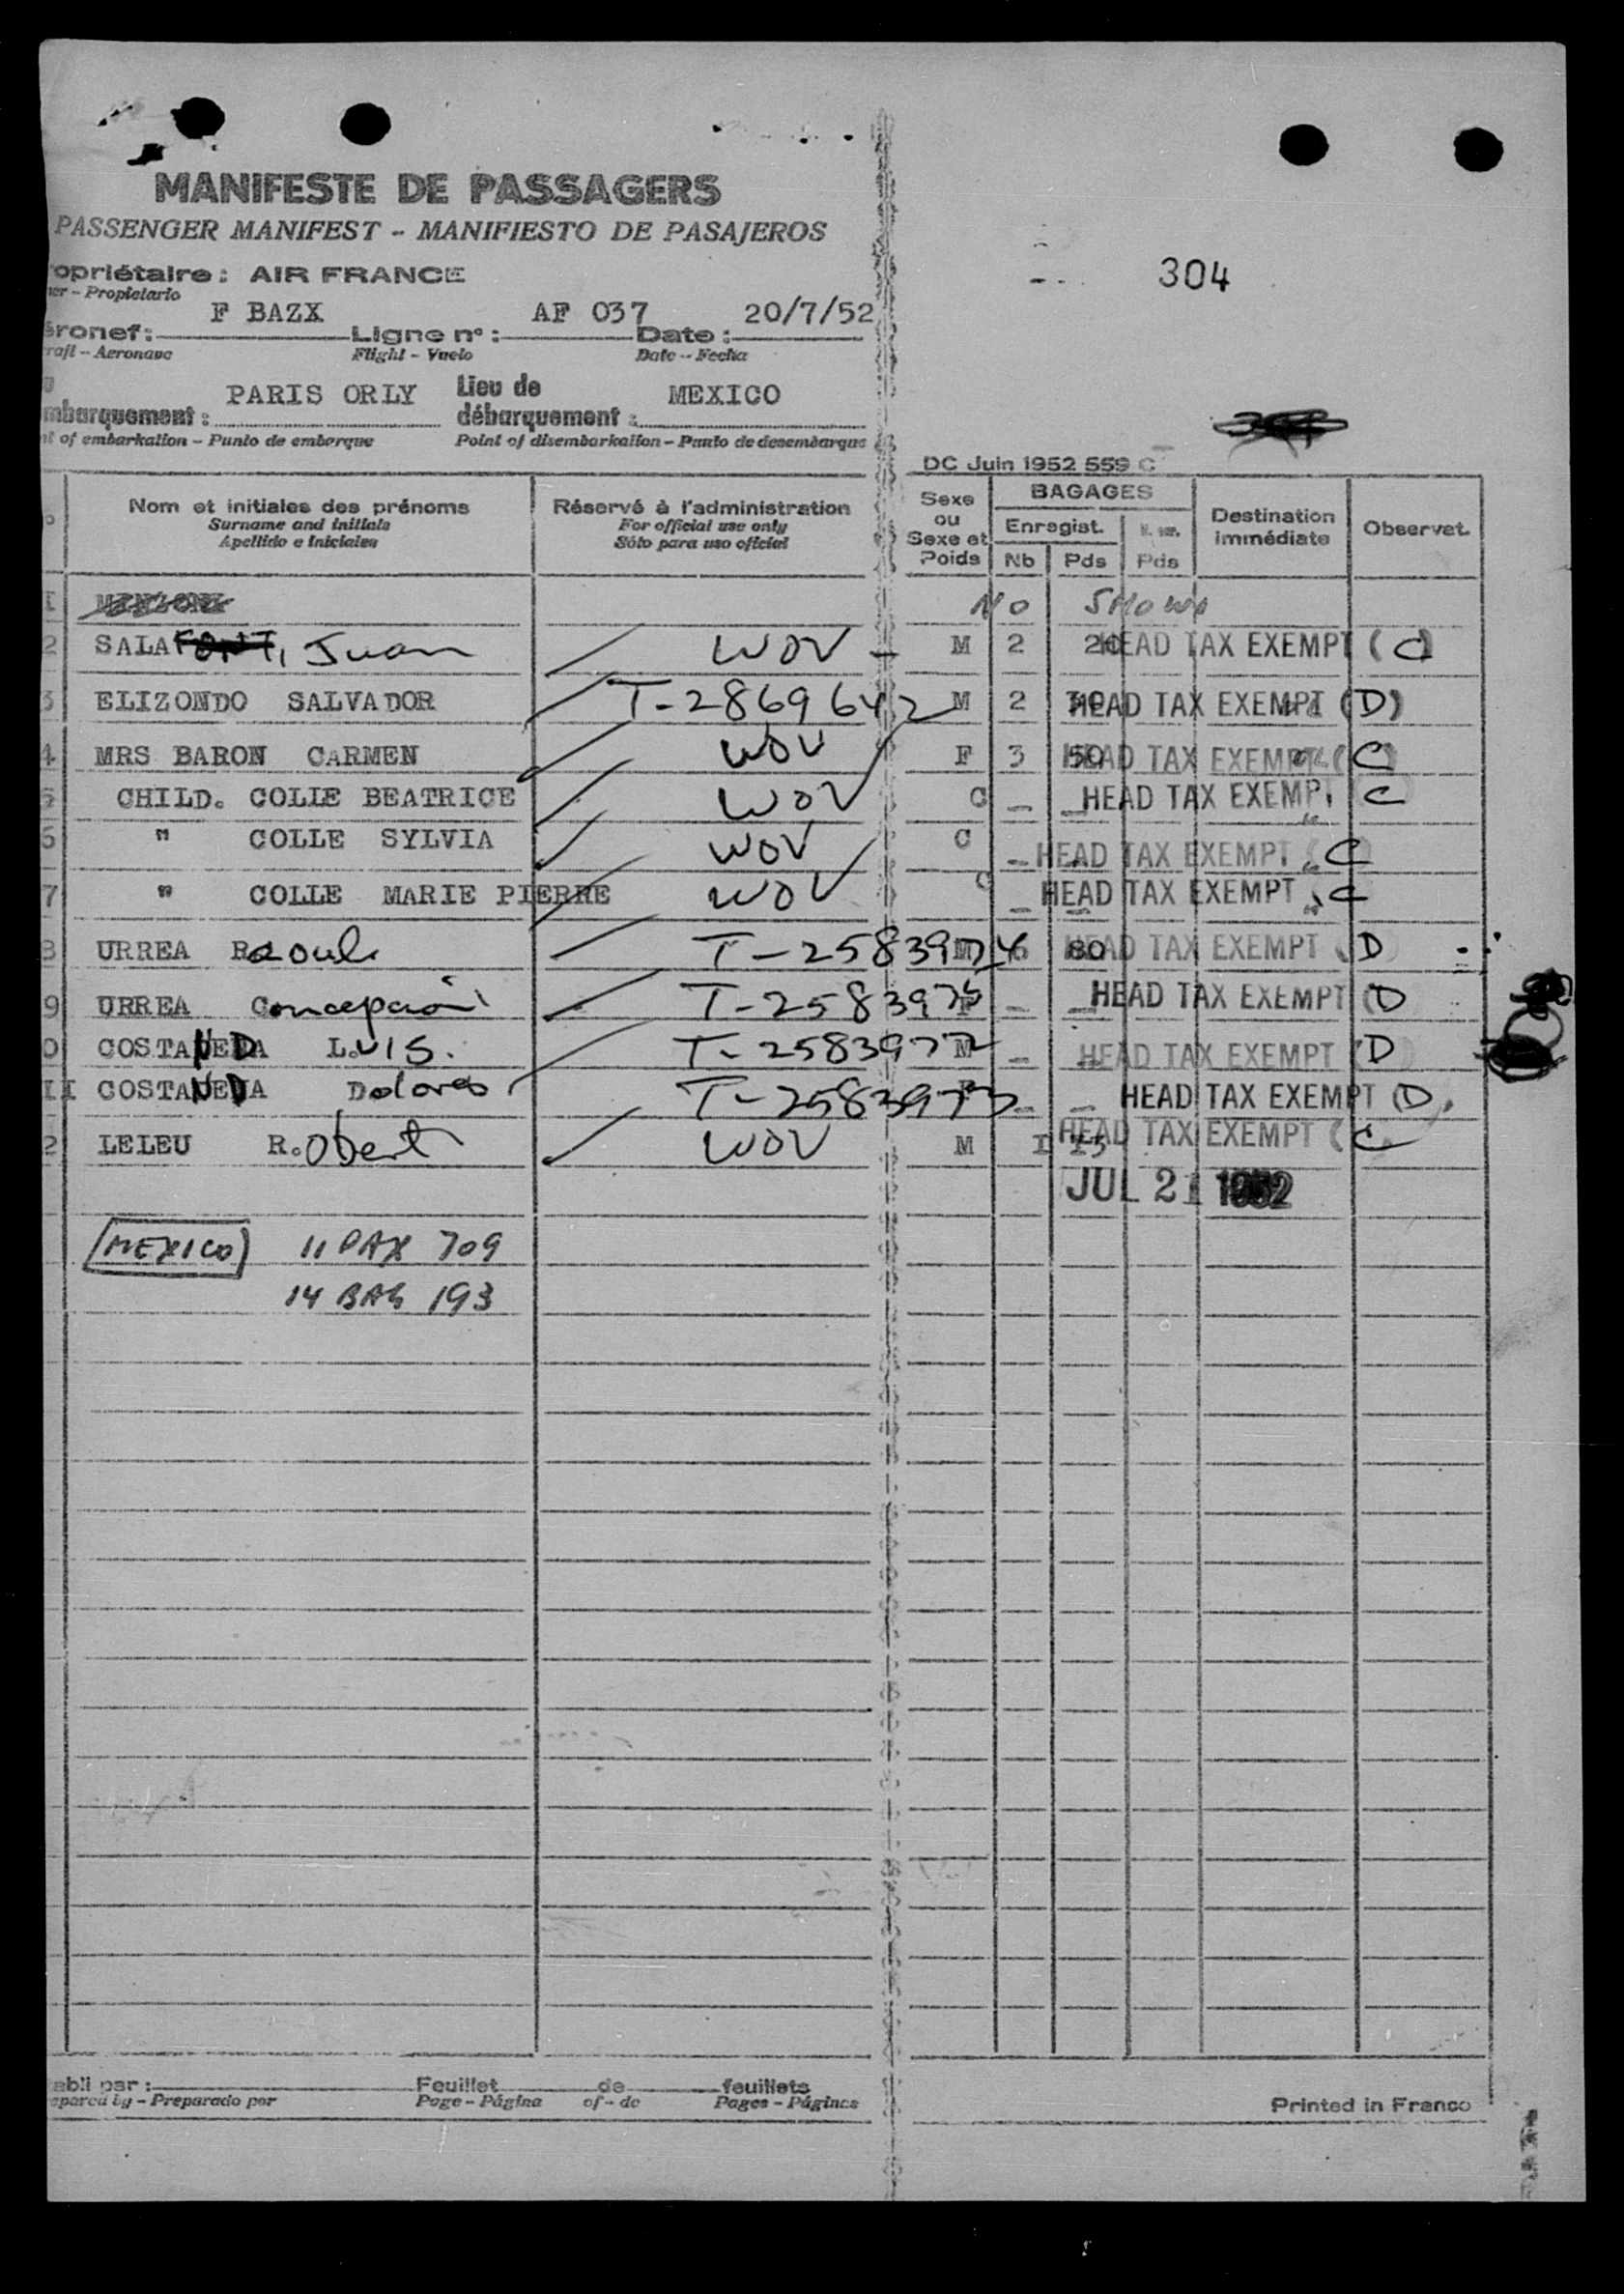 MANIFESTE DE PASSAGERS
PASSENGER MANIFEST - MANIFIESTO DE PASAJEROS
opriétaire : AIR FRANCE
er - Propietario
304
F BAZX AF 037 20/7/52
éronef: Ligne n° : Date :
raft - Aeronave Flight - Vuelo Date - Fecha
PARIS ORLY Lieu de MEXICO
mbarquement : débarquement :
nt of embarkation - Punto de embarque Point of disembarkation - Punto de desembarque
DC Juin 1952 559 C
Nom et initiales des prénoms Réservé à l'administration Sexe BAGAGES Destination Observat.
Surname and initials For official use only ou Enregist. immédiate
Apellido e iniciales Sólo para uso oficial Sexe et
Poids Nb Pds Pds
1 No Show
2 SALA , Juan WOV M 2 20 HEAD TAX EXEMPT (C)
3 ELIZONDO SALVADOR T-2869642 M 2 30 HEAD TAX EXEMPT (D)
4 MRS BARON CARMEN WOV F 3 50 HEAD TAX EXEMPT (C)
5 CHILD. COLLE BEATRICE WOV C - - HEAD TAX EXEMPT C
6 " COLLE SYLVIA WOV C - HEAD TAX EXEMPT C
7 " COLLE MARIE PIERRE WOV C - - HEAD TAX EXEMPT C
8 URREA Raoul T-2583974 M 6 80 HEAD TAX EXEMPT D
9 URREA Concepción T-2583975 F - - HEAD TAX EXEMPT (D
0 COSTANEDA LUIS. T-2583972 M - - HEAD TAX EXEMPT (D
II COSTANEDA Dolores T-2583973 F - - HEAD TAX EXEMPT (D)
2 LELEU R.obert WOV M I I5 HEAD TAX EXEMPT (C
JUL 21 1952
MEXICO 11 PAX 709
14 BAG 193
abli par : Feuillet de feuillets
epared by - Preparado por Page - Página of - de Pages - Páginas
Printed in France